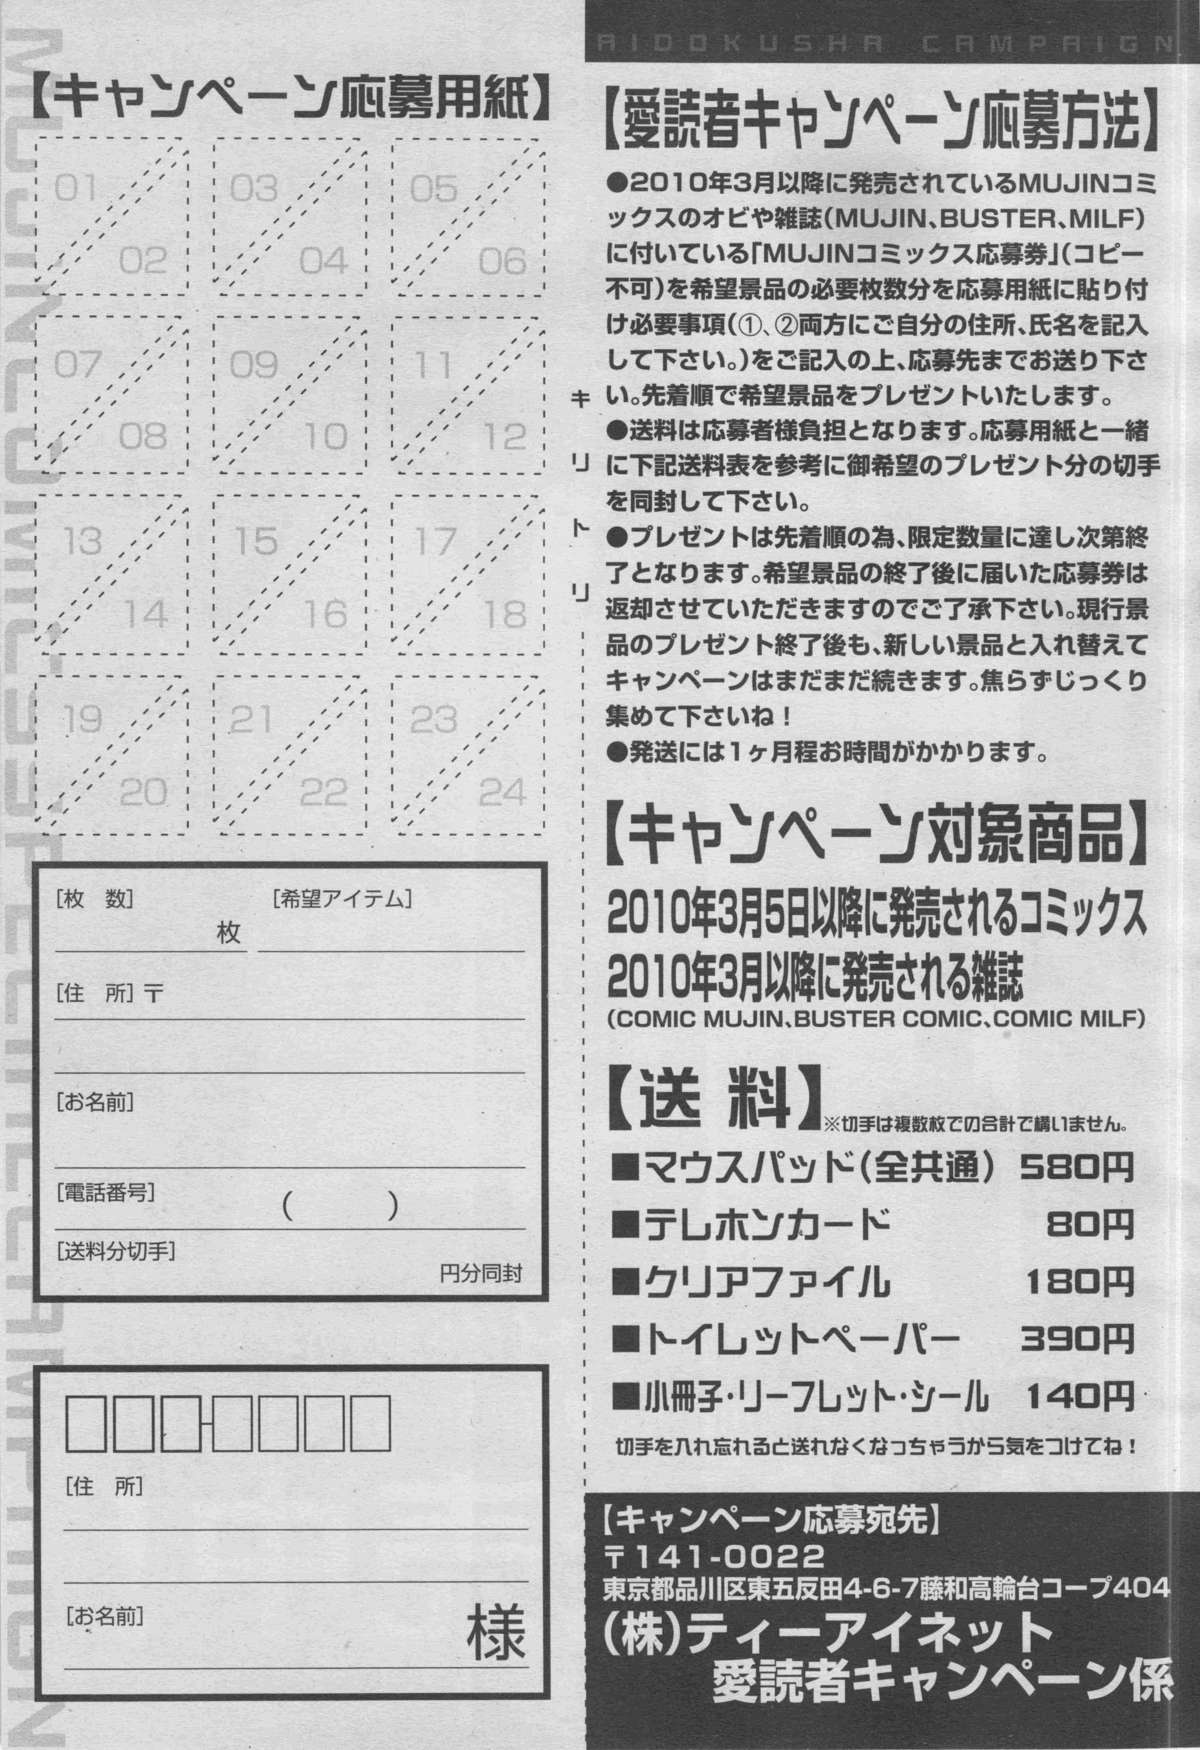 AIDOKUSHA CAMPAIGN
【愛読者キャンペーン応募方法】
●2010年3月以降に発売されているMUJINコミ
ックスのオビや雑誌(MUJIN、BUSTER、MILF)
に付いている「MUJINコミックス応募券」(コピー
不可)を希望景品の必要枚数分を応募用紙に貼り付
け必要事項(①、②両方にご自分の住所、氏名を記入
して下さい。)をご記入の上、応募先までお送り下さ
い。先着順で希望景品をプレゼントいたします。
●送料は応募者様負担となります。応募用紙と一緒
に下記送料表を参考に御希望のプレゼント分の切手
を同封して下さい。
●プレゼントは先着順の為、限定数量に達し次第終
了となります。希望景品の終了後に届いた応募券は
返却させていただきますのでご了承下さい。現行景
品のプレゼント終了後も、新しい景品と入れ替えて
キャンペーンはまだまだ続きます。焦らずじっくり
集めて下さいね!
●発送には1ヶ月程お時間がかかります。
【キャンペーン対象商品】
2010年3月5日以降に発売されるコミックス
2010年3月以降に発売される雑誌
(COMIC MUJIN、BUSTER COMIC、COMIC MILF)
【送 料】※切手は複数枚での合計で構いません。
■マウスパッド(全共通) 580円
■テレホンカード 80円
■クリアファイル 180円
■トイレットペーパー 390円
■小冊子・リーフレット・シール 140円
切手を入れ忘れると送れなくなっちゃうから気をつけてね!
【キャンペーン応募宛先】
〒141-0022
東京都品川区東五反田4-6-7藤和高輪台コープ404
(株)ティーアイネット
愛読者キャンペーン係
キリトリ
【キャンペーン応募用紙】
01 03 05
02 04 06
07 09 11
08 10 12
13 15 17
14 16 18
19 21 23
20 22 24
[枚 数] [希望アイテム]
枚
[住 所]〒
[お名前]
[電話番号] ( )
[送料分切手]
円分同封
[住 所]
[お名前]
様